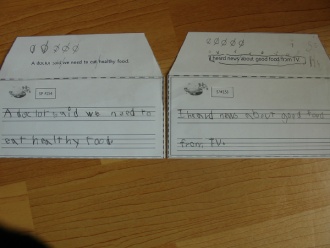 A doctor said we need to eat healthy food.
A doctor said we need to
eat healthy food.
I heard news about good food from TV.
I heard news about good food
from TV.